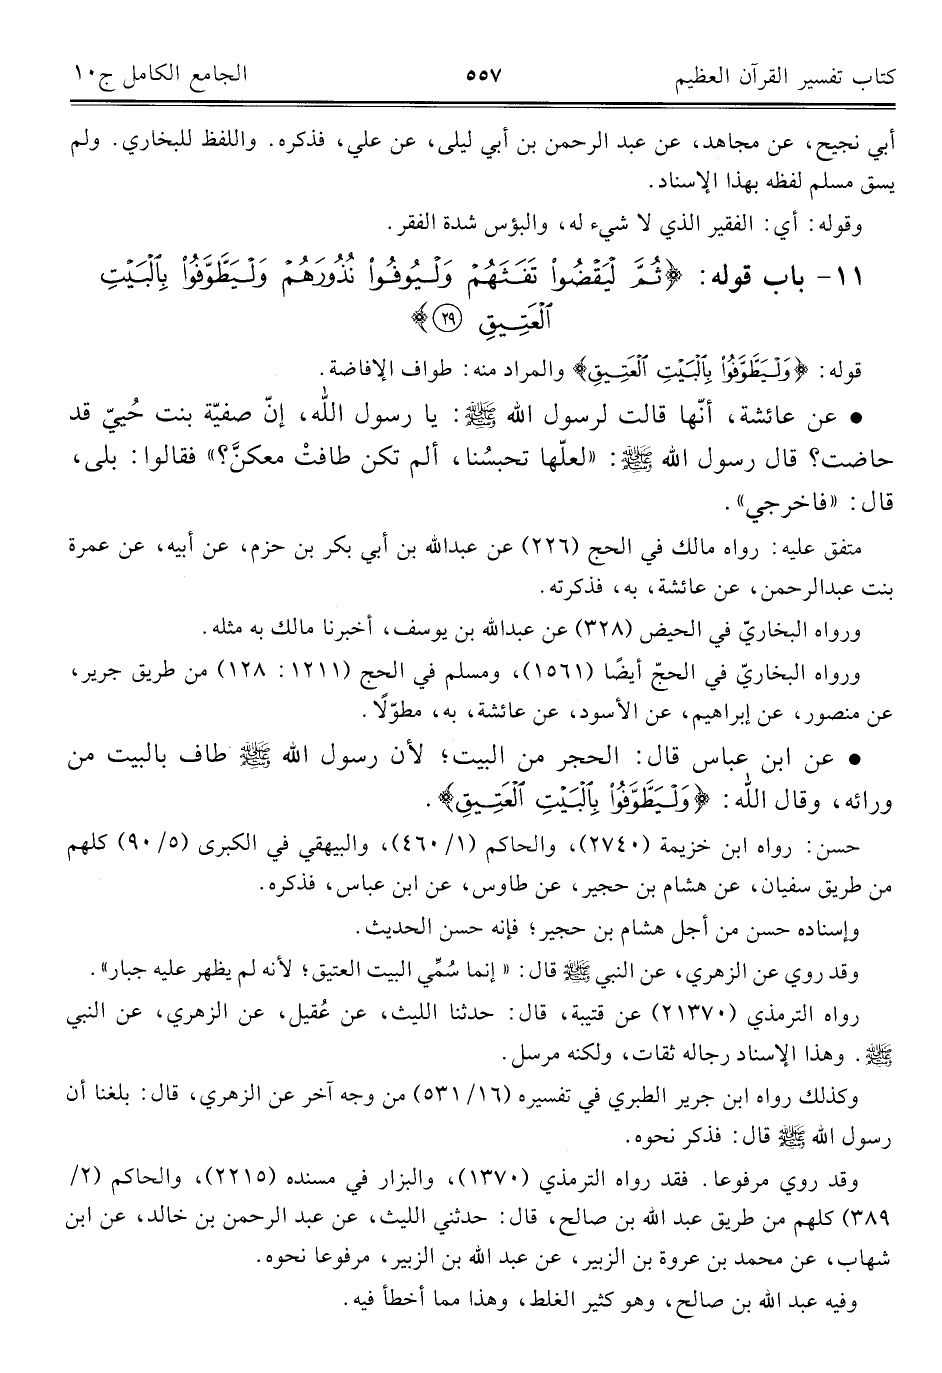 كتاب تفسير القرآن العظيم ٥٥٧ الجامع الكامل ج١٠
أبي نجيح، عن مجاهد، عن عبد الرحمن بن أبي ليلى، عن علي، فذكره. واللفظ للبخاري. ولم
يسق مسلم لفظه بهذا الإسناد.
وقوله: أي: الفقير الذي لا شيء له، والبؤس شدة الفقر.
١١- باب قوله: ﴿ثُمَّ لْيَقْضُوا۟ تَفَثَهُمْ وَلْيُوفُوا۟ نُذُورَهُمْ وَلْيَطَّوَّفُوا۟ بِٱلْبَيْتِ
ٱلْعَتِيقِ ٢٩﴾
قوله: ﴿وَلْيَطَّوَّفُوا۟ بِٱلْبَيْتِ ٱلْعَتِيقِ﴾ والمراد منه: طواف الإفاضة.
• عن عائشة، أنّها قالت لرسول الله ﷺ: يا رسول الله، إنّ صفيّة بنت حُييّ قد
حاضت؟ قال رسول الله ﷺ: «لعلّها تحبسُنا، ألم تكن طافتْ معكنَّ؟» فقالوا: بلى،
قال: «فاخرجي».
متفق عليه: رواه مالك في الحج (٢٢٦) عن عبدالله بن أبي بكر بن حزم، عن أبيه، عن عمرة
بنت عبدالرحمن، عن عائشة، به، فذكرته.
ورواه البخاريّ في الحيض (٣٢٨) عن عبدالله بن يوسف، أخبرنا مالك به مثله.
ورواه البخاريّ في الحجّ أيضًا (١٥٦١)، ومسلم في الحج (١٢١١: ١٢٨) من طريق جرير،
عن منصور، عن إبراهيم، عن الأسود، عن عائشة، به، مطوّلًا.
• عن ابن عباس قال: الحجر من البيت؛ لأن رسول الله ﷺ طاف بالبيت من
ورائه، وقال الله: ﴿وَلْيَطَّوَّفُوا۟ بِٱلْبَيْتِ ٱلْعَتِيقِ﴾.
حسن: رواه ابن خزيمة (٢٧٤٠)، والحاكم (١/ ٤٦٠)، والبيهقي في الكبرى (٥/ ٩٠) كلهم
من طريق سفيان، عن هشام بن حجير، عن طاوس، عن ابن عباس، فذكره.
وإسناده حسن من أجل هشام بن حجير؛ فإنه حسن الحديث.
وقد روي عن الزهري، عن النبي ﷺ قال: « إنما سُمِّي البيت العتيق؛ لأنه لم يظهر عليه جبار».
رواه الترمذي (٢١٣٧٠) عن قتيبة، قال: حدثنا الليث، عن عُقيل، عن الزهري، عن النبي
ﷺ. وهذا الإسناد رجاله ثقات، ولكنه مرسل.
وكذلك رواه ابن جرير الطبري في تفسيره (١٦/ ٥٣١) من وجه آخر عن الزهري، قال: بلغنا أن
رسول الله ﷺ قال: فذكر نحوه.
وقد روي مرفوعا. فقد رواه الترمذي (١٣٧٠)، والبزار في مسنده (٢٢١٥)، والحاكم (٢/
٣٨٩) كلهم من طريق عبد الله بن صالح، قال: حدثني الليث، عن عبد الرحمن بن خالد، عن ابن
شهاب، عن محمد بن عروة بن الزبير، عن عبد الله بن الزبير، مرفوعا نحوه.
وفيه عبد الله بن صالح، وهو كثير الغلط، وهذا مما أخطأ فيه.